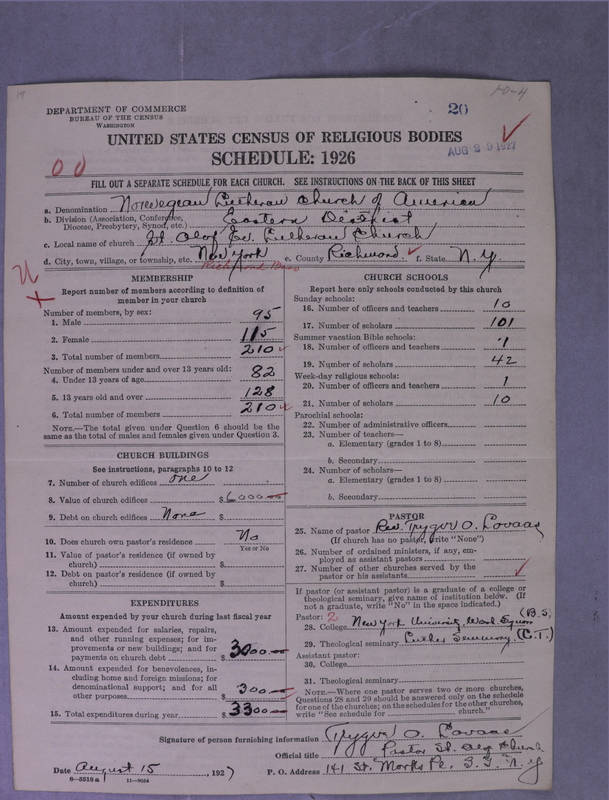 20
DEPARTMENT OF COMMERCE
BUREAU OF THE CENSUS
WASHINGTON
UNITED STATES CENSUS OF RELIGIOUS BODIES
AUG 29 1927
SCHEDULE: 1926
FILL OUT A SEPARATE SCHEDULE FOR EACH CHURCH. SEE INSTRUCTIONS ON THE BACK OF THIS SHEET
a. Denomination Norwegian Lutheran Church of America
b. Division (Association, Conference, Diocese, Presbytery, Synod, etc.) Eastern District
c. Local name of church St. Olaf Ev. Lutheran Church
d. City, town, village, or township, etc. New York e. County Richmond f. State N.Y.
Richmond Boro
MEMBERSHIP
Report number of members according to definition of
member in your church
Number of members, by sex:
1. Male 95
2. Female 115
3. Total number of members 210
Number of members under and over 13 years old:
4. Under 13 years of age 82
5. 13 years old and over 128
6. Total number of members 210
NOTE.—The total given under Question 6 should be
the same as the total of males and females given under Question 3.
CHURCH BUILDINGS
See instructions, paragraphs 10 to 12
7. Number of church edifices one
8. Value of church edifices $6000
9. Debt on church edifices None
10. Does church own pastor's residence No
Yes or No
11. Value of pastor's residence (if owned by
church) $
12. Debt on pastor's residence (if owned by
church) $
EXPENDITURES
Amount expended by your church during last fiscal year
13. Amount expended for salaries, repairs,
and other running expenses; for im-
provements or new buildings; and for
payments on church debt $3000
14. Amount expended for benevolences, in-
cluding home and foreign missions; for
denominational support; and for all
other purposes 300
15. Total expenditures during year $3300
CHURCH SCHOOLS
Report here only schools conducted by this church
Sunday schools:
16. Number of officers and teachers 10
17. Number of scholars 101
Summer vacation Bible schools:
18. Number of officers and teachers 1
19. Number of scholars 42
Week-day religious schools:
20. Number of officers and teachers 1
21. Number of scholars 10
Parochial schools:
22. Number of administrative officers
23. Number of teachers—
a. Elementary (grades 1 to 8)
b. Secondary
24. Number of scholars—
a. Elementary (grades 1 to 8)
b. Secondary
PASTOR
25. Name of pastor Rev. Trygve O. Lovaas
(If church has no pastor, write "None")
26. Number of ordained ministers, if any, em-
ployed as assistant pastors
27. Number of other churches served by the
pastor or his assistants
If pastor (or assistant pastor) is a graduate of a college or
theological seminary, give name of institution below. (If
not a graduate, write "No" in the space indicated.)
Pastor: 2 (B.S.
28. College New York University, Wash. Square
29. Theological seminary Luther Seminary (C.T.)
Assistant pastor:
30. College
31. Theological seminary
NOTE.—Where one pastor serves two or more churches,
Questions 28 and 29 should be answered only on the schedule
for one of the churches; on the schedules for the other churches,
write "See schedule for church."
Signature of person furnishing information Trygve O. Lovaas
Official title Pastor St. Olaf Church
Date August 15, 1927 P. O. Address 141 St. Marks Pl. S. I. N.Y.
8-5518a 11-9054